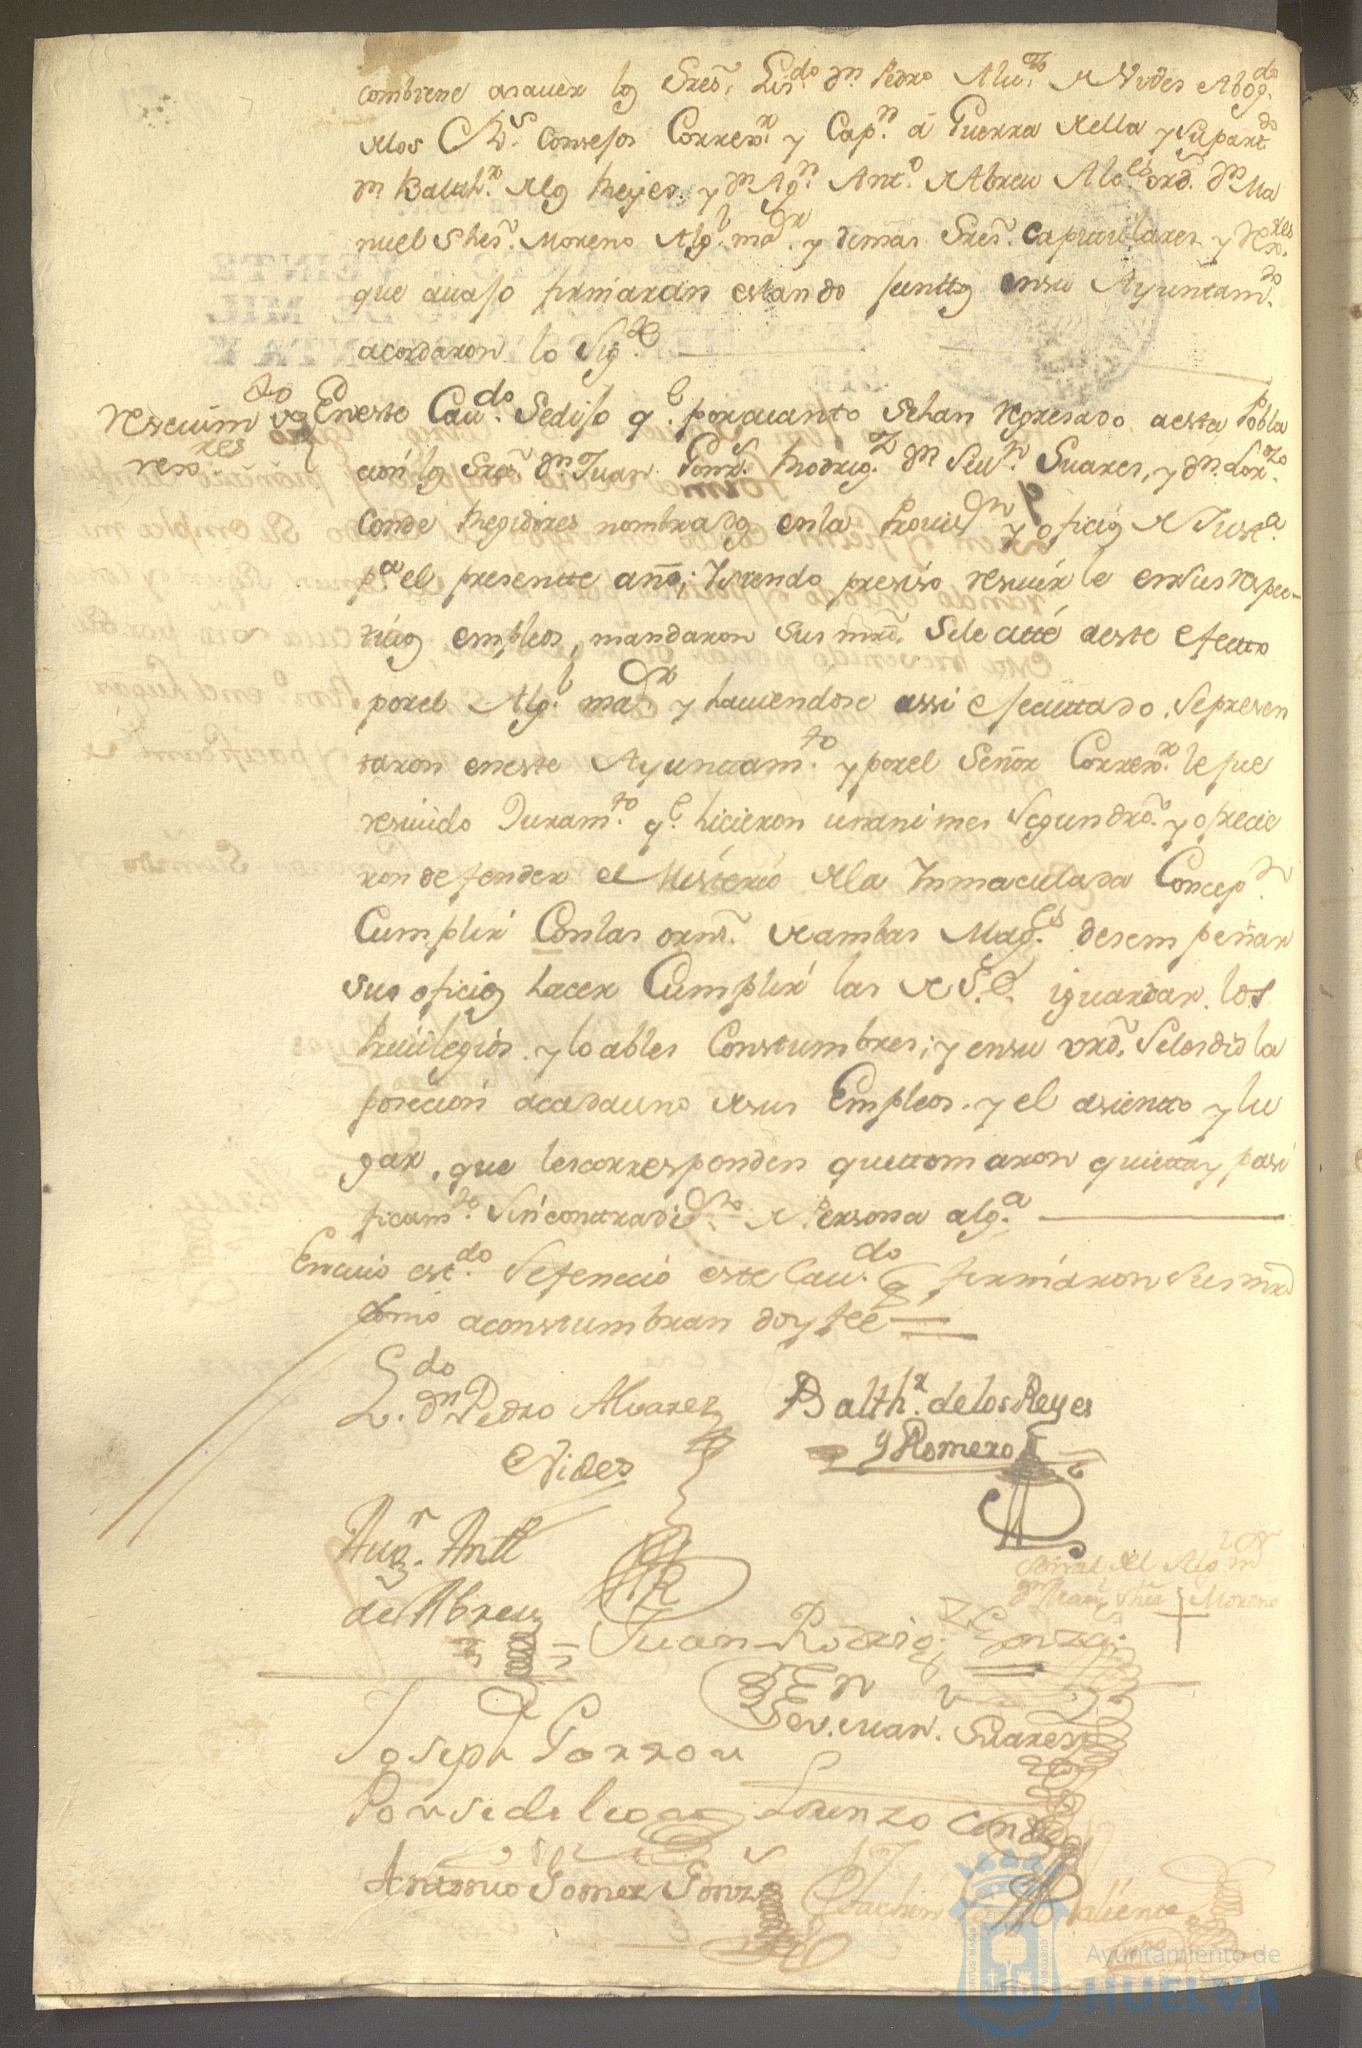 combiene asauer los Sres. Lizdo. Dn. Pedro Aluz. de Vides Abogdo.
de los Rs. Consejos Correxr. y Capn. á Guerra della y su partdo.
Dn. Balthr. de los Reyes, y Dn. Agn. Anto. de Abreu Alces. ord. Dn. Ma
nuel Shes. Moreno Algl. maor. y demas Sres. capitulares y Rexres.
que auajo firmaran estando junttos en su Ayuntamto.
acordaron lo sige.
Resevimto. de
rexres.
En este Caudo. Se dijo qe. por quanto Sehan regresado a esta Pobla
ción los Sres. Dn. Juan Gonz. Rodrigz. Dn. Seun. Suares, y Dn. Lorzo.
Conde Regidores nombrados en la Provisn. y oficios de Justa.
pa. el presentte año; y siendo presiso resevirle en sus respec-
tiuos empleos, mandaron sus mrds. Se le citté a este efecto
por el Algl. maor. y hauiendose assi ejecuttado. Se presen
taron en este Ayuntamto. y por el Señor Correxr. le fue
resiuido Juramto. qe. hicieron unanimes Segun dro. y ofrecie
ron defender el Misterio de la Inmaculada Concepn.
Cumplir Con las orns. de ambas Magds. desempeñar
sus oficios hacer Cumplir las de S.E. iguardar los
Priuilegios y loables Constumbres; y en su vrd. Se les dio la
posecion acadauno de sus Empleos. y el asientto y lu
gar, que les corresponden que ttomaron quietta y pasi
ficamte. Sin contradicn. de Persona alga.
En cuio estdo. Se fenecio este Caudo. q firmaron Sus mrds
como aconstumbran doy fee
Ldo. Dn. Pedro Alvarez
de Vides
Balthr. de los Reyes
y Romero
Augn. Antto
de Abreu
Señal del Algl. mr
Dn. Manl. Shes Moreno
Juan Rodrigz. Gonz.
Dn
Sev. Juan. Suares
Joseph Garrou
Ponse de leon
Lorenzo Conde
Antonio Gomez Gonz
Joachin Valiente
Ayuntamiento de
HUELVA